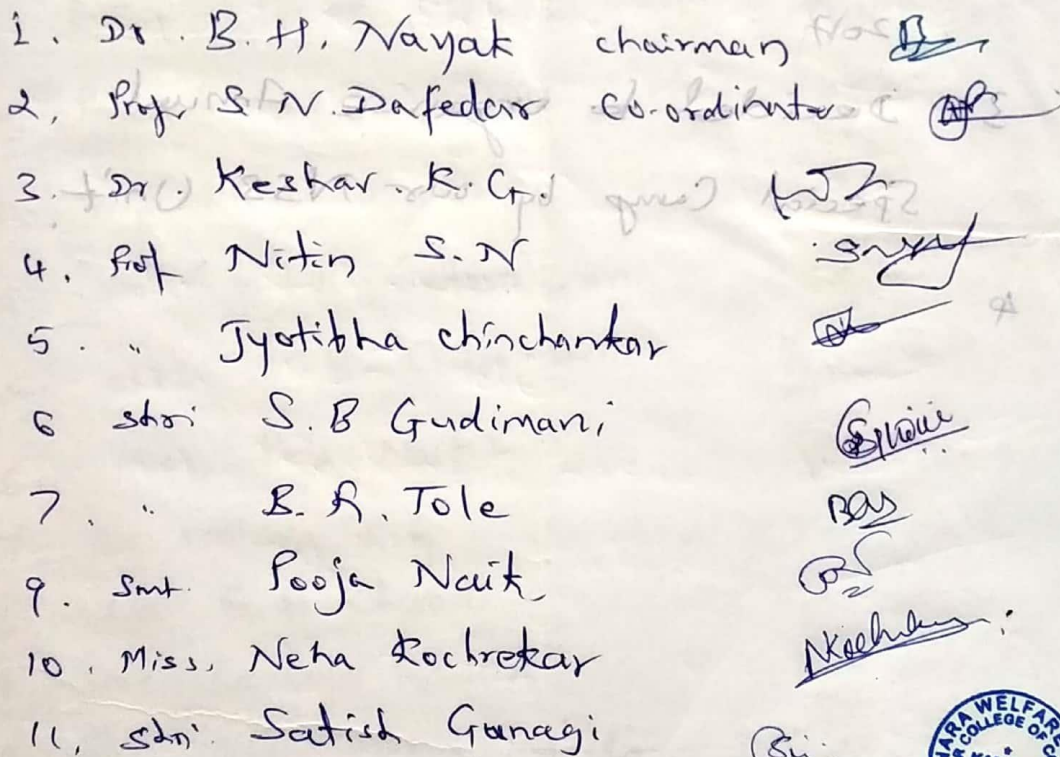 1. Dr. B. H. Nayak chairman
2, Prof. S. N. Dafedar Co-ordinator
3. Dr. Keshav. K. G.
4. Prof Nitin S. N
5. " Jyotibha chinchankar
6 shri S. B Gudimani
7. " B. R. Tole
9. Smt. Pooja Naik
10. Miss. Neha Kochrekar
11, Shri. Satish Gunagi
ARA WELFARE
COLLEGE OF